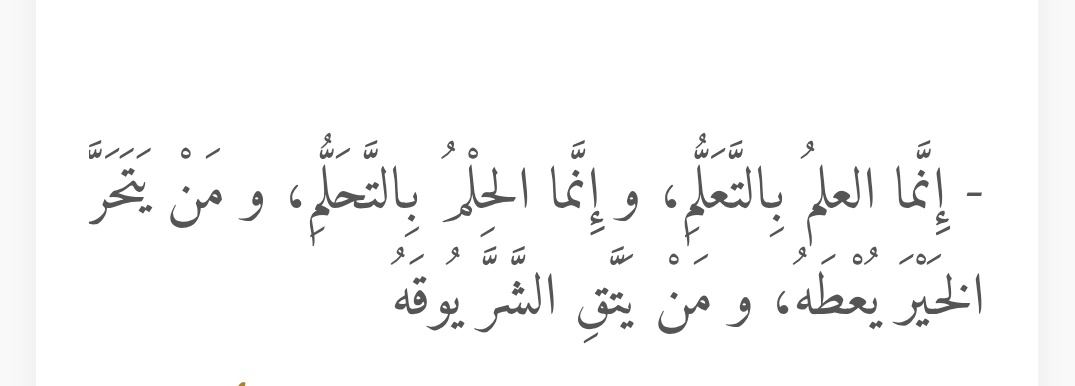 - إِنَّما العلمُ بِالتَّعَلُّمِ، و إِنَّما الحِلْمُ بِالتَّحَلُّمِ، و مَنْ يَتَحَرَّ
الخَيْرَ يُعْطَهُ، و مَنْ يَتَّقِ الشَّرَّ يُوقَهُ